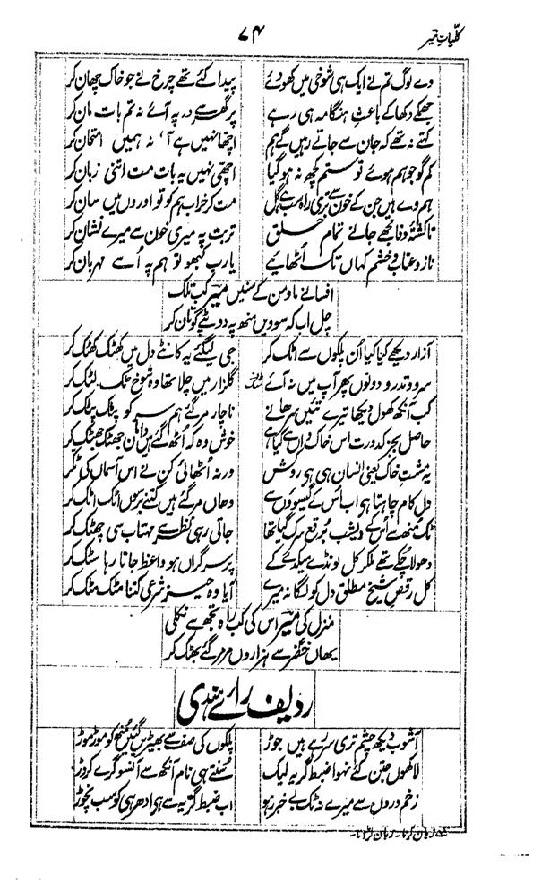 کلیاتِ میر
۷۴
وے لوگ تم نے ایک ہی شوخی میں کھو دئے پیدا کئے تھے چرخ نے جو خاک چھان کر
جھمکے دکھا کے باعث ہنگامہ ہی رہے پر گھر سے در پہ آئے نہ تم بات مان کر
کہتے نہ تھے کہ جان سے جاتے رہیں گے ہم اچھا نہیں ہے آ، نہ ہمیں امتحان کر
کم گو جو ہم ہوئے تو ستم کچھ نہ ہو گیا اچھی نہیں یہ بات مت اتنی زبان کر
ہم وے ہیں جن کے خون سے تری راہ سب ہے گل مت کر خراب ہم کو تو اوروں میں سان کر
تا کشتۂ وفا مجھے جانے تمام خلق تربت پہ میری خون سے میرے نشان کر
ناز و عتاب و خشم کہاں تک اُٹھائیے یارب کبھو تو ہم پہ اُسے مہربان کر
افسانے ما و من کے سنیں میر کب تلک
چل اب کہ سوویں منھ پہ دوپٹے کو تان کر
آزار دیکھے کیا کیا اُن پلکوں سے اٹک کر جی لے گئے یہ کانٹے دل میں کھٹک کھٹک کر
سرو و تدرو دونوں پھر آپ میں نہ آئے گلزار میں چلا تھا وہ شوخ ٹک لٹک کر
کب آنکھ کھول دیکھا تیرے تئیں سرہانے ناچار مر گئے ہم سر کو پٹک پٹک کر
حاصل بجز کدورت اس خاکداں سے کیا ہے خوش وہ کہ اُٹھ گئے ہیں داماں جھٹک جھٹک کر
یہ مشت خاک یعنی انسان ہی ہے روکش ورنہ اُٹھائی کن نے اس آسماں کی ٹکر
دل کام چاہتا ہے اب اُس کے گیسوؤں سے وھاں مر گئے ہیں کتنے برسوں اٹک اٹک کر
ٹک منھ سے اُس کے دیشب برقع سرک گیا تھا جاتی رہی نظر سے مہتاب سی چھٹک کر
دھولا چکے تھے ملکر کل لونڈے میکدے کے پر سرگراں ہو واعظ جاتا رہا سٹک کر
کل رقص شیخ مطلق دل کو لگا نہ میرے آیا وہ حیز شرعی کتنا مٹک مٹک کر
منزل کی میر اس کی کب راہ تجھ سے نکلے
یھاں خضر سے ہزاروں مر مر گئے بھٹک کر
ردیف رائے ہندی
آشوب دیکھ چشم تری سر رہے ہیں جوڑ پلکوں کی صف سے بھیڑیں گئیں منھ کو موڑ موڑ
لاکھوں جتن کئے نہ ہوا ضبط گریہ لیک سنتے ہی نام آنکھ سے آنسو گرے کروڑ
زخم دروں سے میرے نہ ٹک بے خبر رہو اب ضبط گریہ سے ہے ادھر ہی کو سب نچوڑ